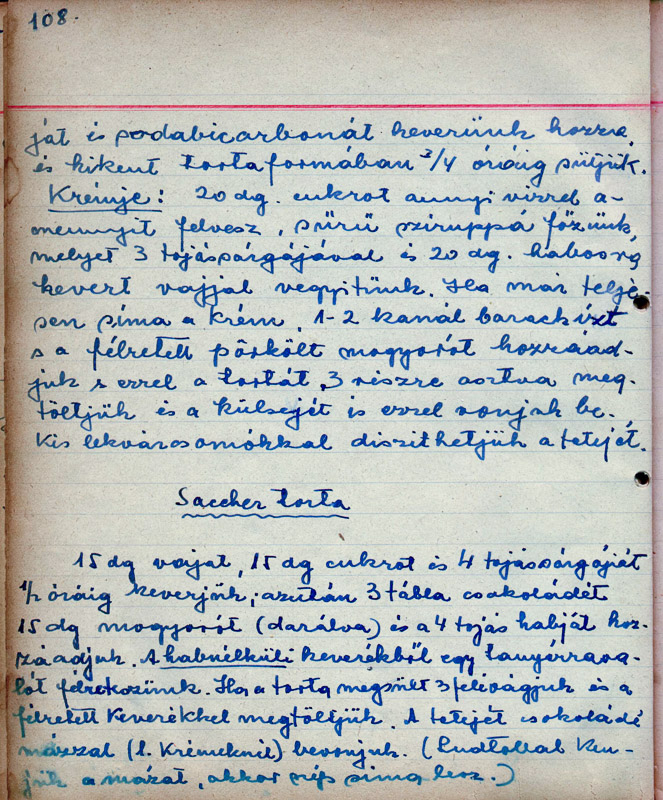 108.
ját és sodabicarbonát keverünk hozzá,
és kikent tortaformában 3/4 óráig sütjük.
Krémje: 20 dg. cukrot annyi vizzel a-
mennyit felvesz, sűrű sziruppá főzünk,
melyet 3 tojássárgájával és 20 dg. habosra
kevert vajjal vegyitünk. Ha már telje-
sen síma a krém, 1-2 kanál barackízt
s a félretett pörkölt mogyorót hozzáad-
juk s ezzel a tortát 3 részre osztva meg-
töltjük és a külsejét is ezzel vonjuk be.
Kis lekvárcsomókkal diszithetjük a tetejét.
Saccher torta
15 dg vajat, 15 dg cukrot és 4 tojássárgáját
1/2 óráig keverjük, azután 3 tábla csokoládét
15 dg mogyorót (darálva) és a 4 tojás habját hoz-
záadjuk. A habnélküli keverékből egy tányérrava-
lót félreteszünk. Ha a torta megsült 3 felévágjuk és a
félretett keverékkel megtöltjük. A tetejét csokoládé
mázzal (l. Krémeknél) bevonjuk. (Ludtollal ken-
jük a mázat, akkor szép sima lesz.)